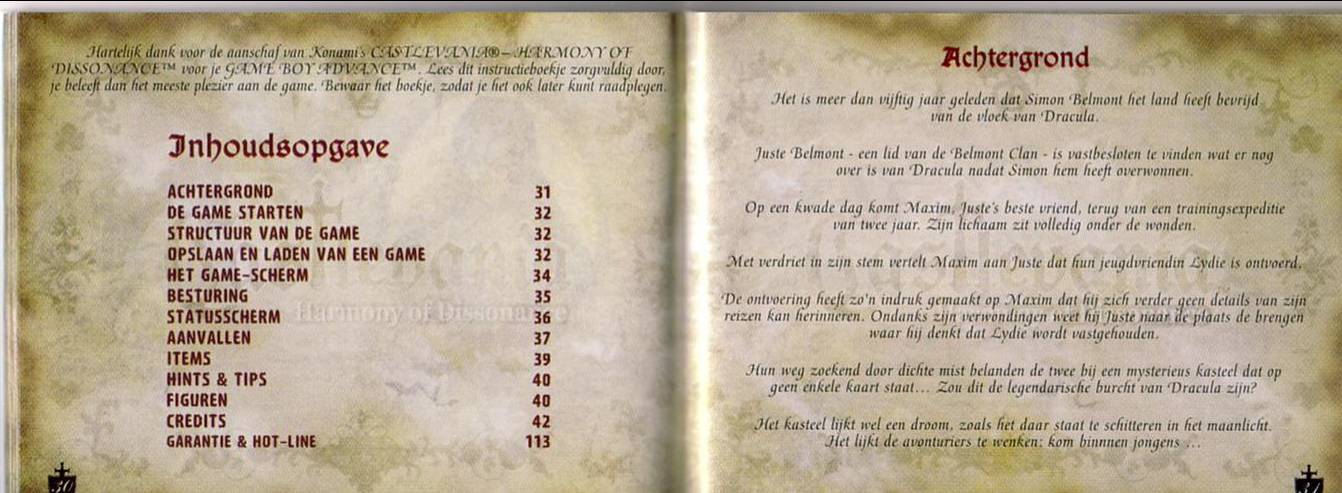 Hartelijk dank voor de aanschaf van Konami's CASTLEVANIA® – HARMONY OF
DISSONANCE™ voor je GAME BOY ADVANCE™. Lees dit instructieboekje zorgvuldig door,
je beleeft dan het meeste plezier aan de game. Bewaar het boekje, zodat je het ook later kunt raadplegen.
Inhoudsopgave
ACHTERGROND 31
DE GAME STARTEN 32
STRUCTUUR VAN DE GAME 32
OPSLAAN EN LADEN VAN EEN GAME 32
HET GAME-SCHERM 34
BESTURING 35
STATUSSCHERM 36
AANVALLEN 37
ITEMS 39
HINTS & TIPS 40
FIGUREN 40
CREDITS 42
GARANTIE & HOT-LINE 113
Harmony of Dissonance
30
Achtergrond
Het is meer dan vijftig jaar geleden dat Simon Belmont het land heeft bevrijd
van de vloek van Dracula.
Juste Belmont - een lid van de Belmont Clan - is vastbesloten te vinden wat er nog
over is van Dracula nadat Simon hem heeft overwonnen.
Op een kwade dag komt Maxim, Juste's beste vriend, terug van een trainingsexpeditie
van twee jaar. Zijn lichaam zit volledig onder de wonden.
Met verdriet in zijn stem vertelt Maxim aan Juste dat hun jeugdvriendin Lydie is ontvoerd.
De ontvoering heeft zo'n indruk gemaakt op Maxim dat hij zich verder geen details van zijn
reizen kan herinneren. Ondanks zijn verwondingen weet hij Juste naar de plaats de brengen
waar hij denkt dat Lydie wordt vastgehouden.
Hun weg zoekend door dichte mist belanden de twee bij een mysterieus kasteel dat op
geen enkele kaart staat... Zou dit de legendarische burcht van Dracula zijn?
Het kasteel lijkt wel een droom, zoals het daar staat te schitteren in het maanlicht.
Het lijkt de avonturiers te wenken: kom binnnen jongens ...
31